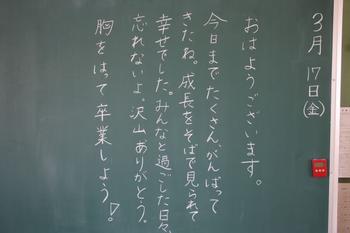 3月17日(金)
おはようございます。
今日までたくさん、がんばって
きたね。成長をそばで見られて
幸せでした。みんなと過ごした日々、
忘れないよ。沢山ありがとう。
胸をはって卒業しよう!。